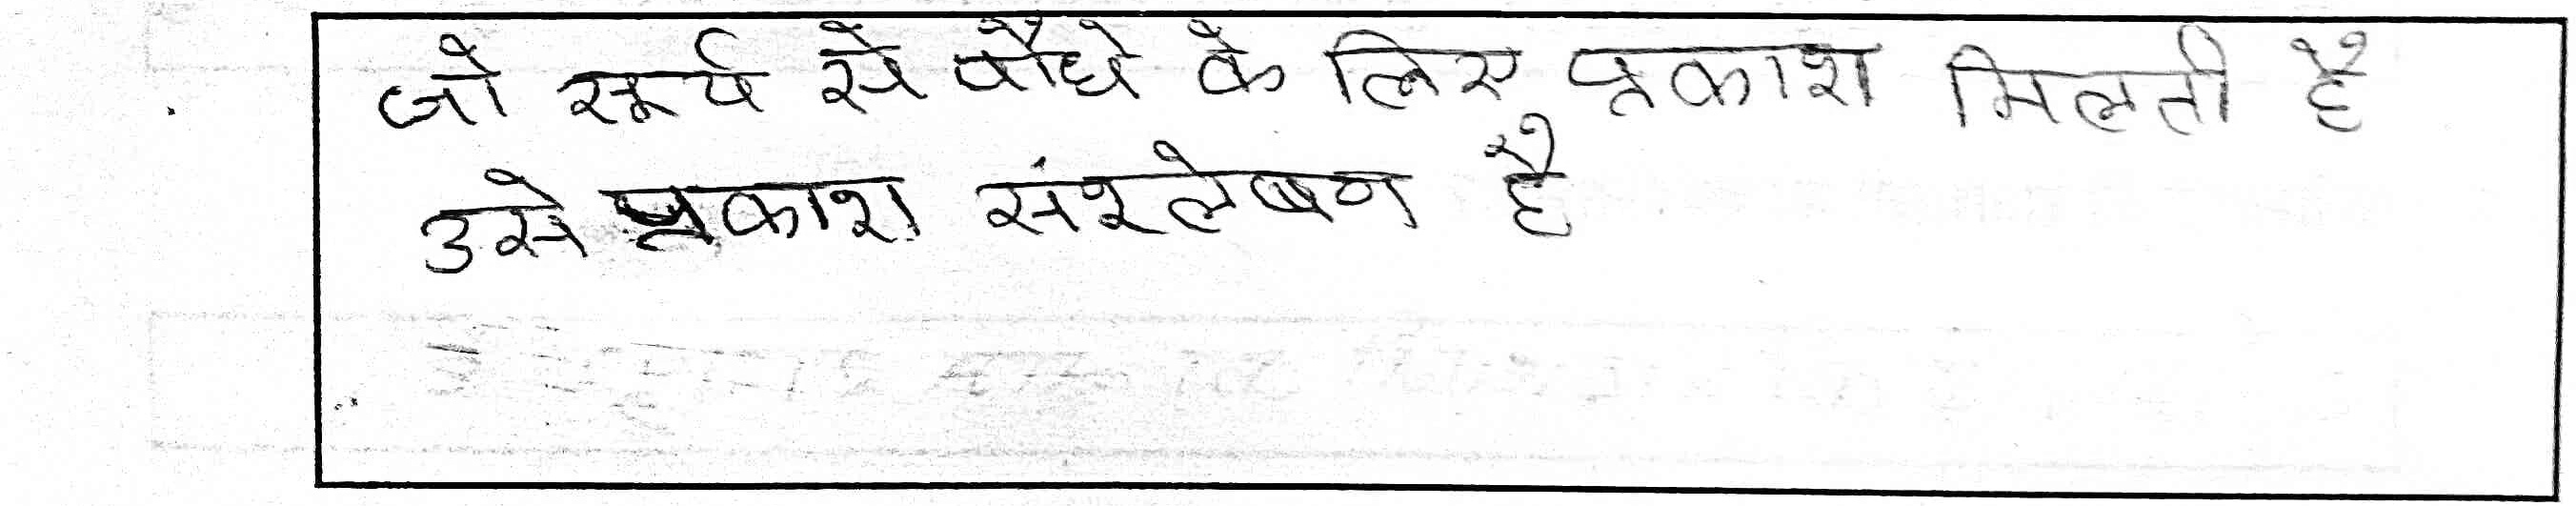 जो सूर्य से पौधे के लिए प्रकाश मिलती है
उसे प्रकाश संश्लेषण है